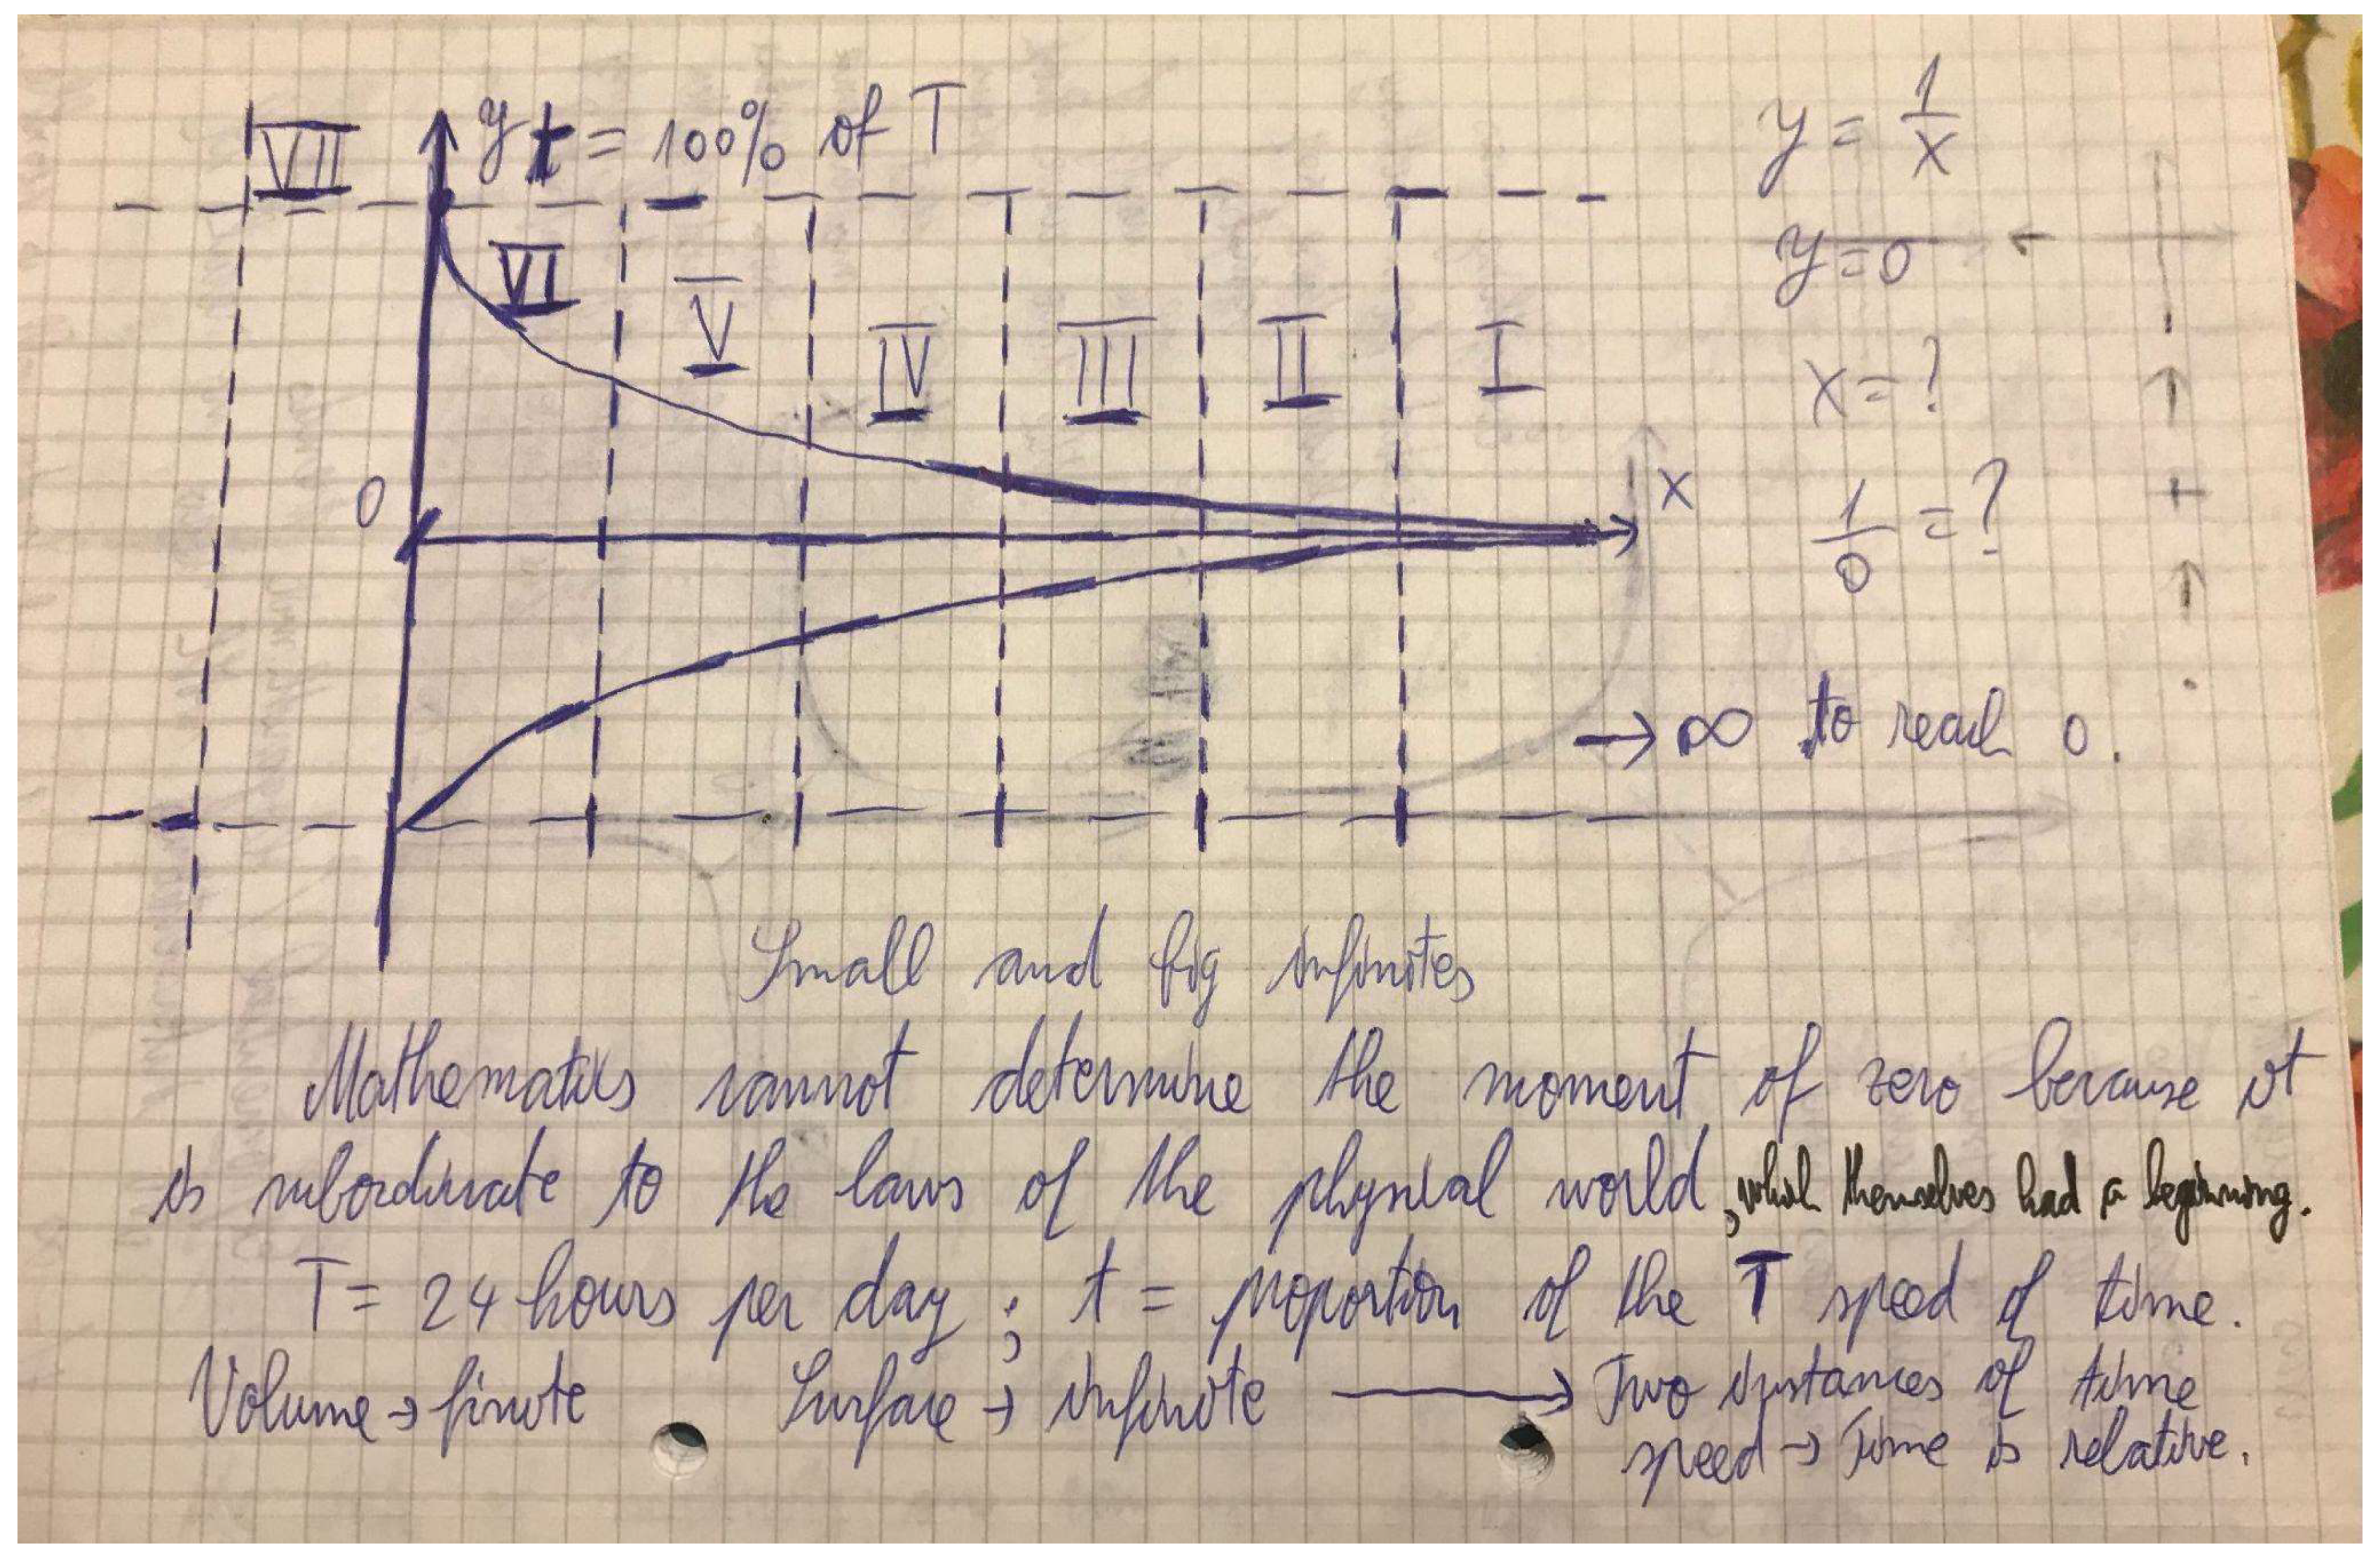 VII
y t = 100% of T
VI
V
IV
III
II
I
0
x
y = 1/x
y=0
x=?
1/0 = ?
→ ∞ to reach 0.
Small and big infinites
Mathematics cannot determine the moment of zero because it
is subordinate to the laws of the physical world, which themselves had a beginning.
T = 24 hours per day ; t = proportion of the T speed of time.
Volume → finite Surface → infinite → Two instances of time
speed → Time is relative.